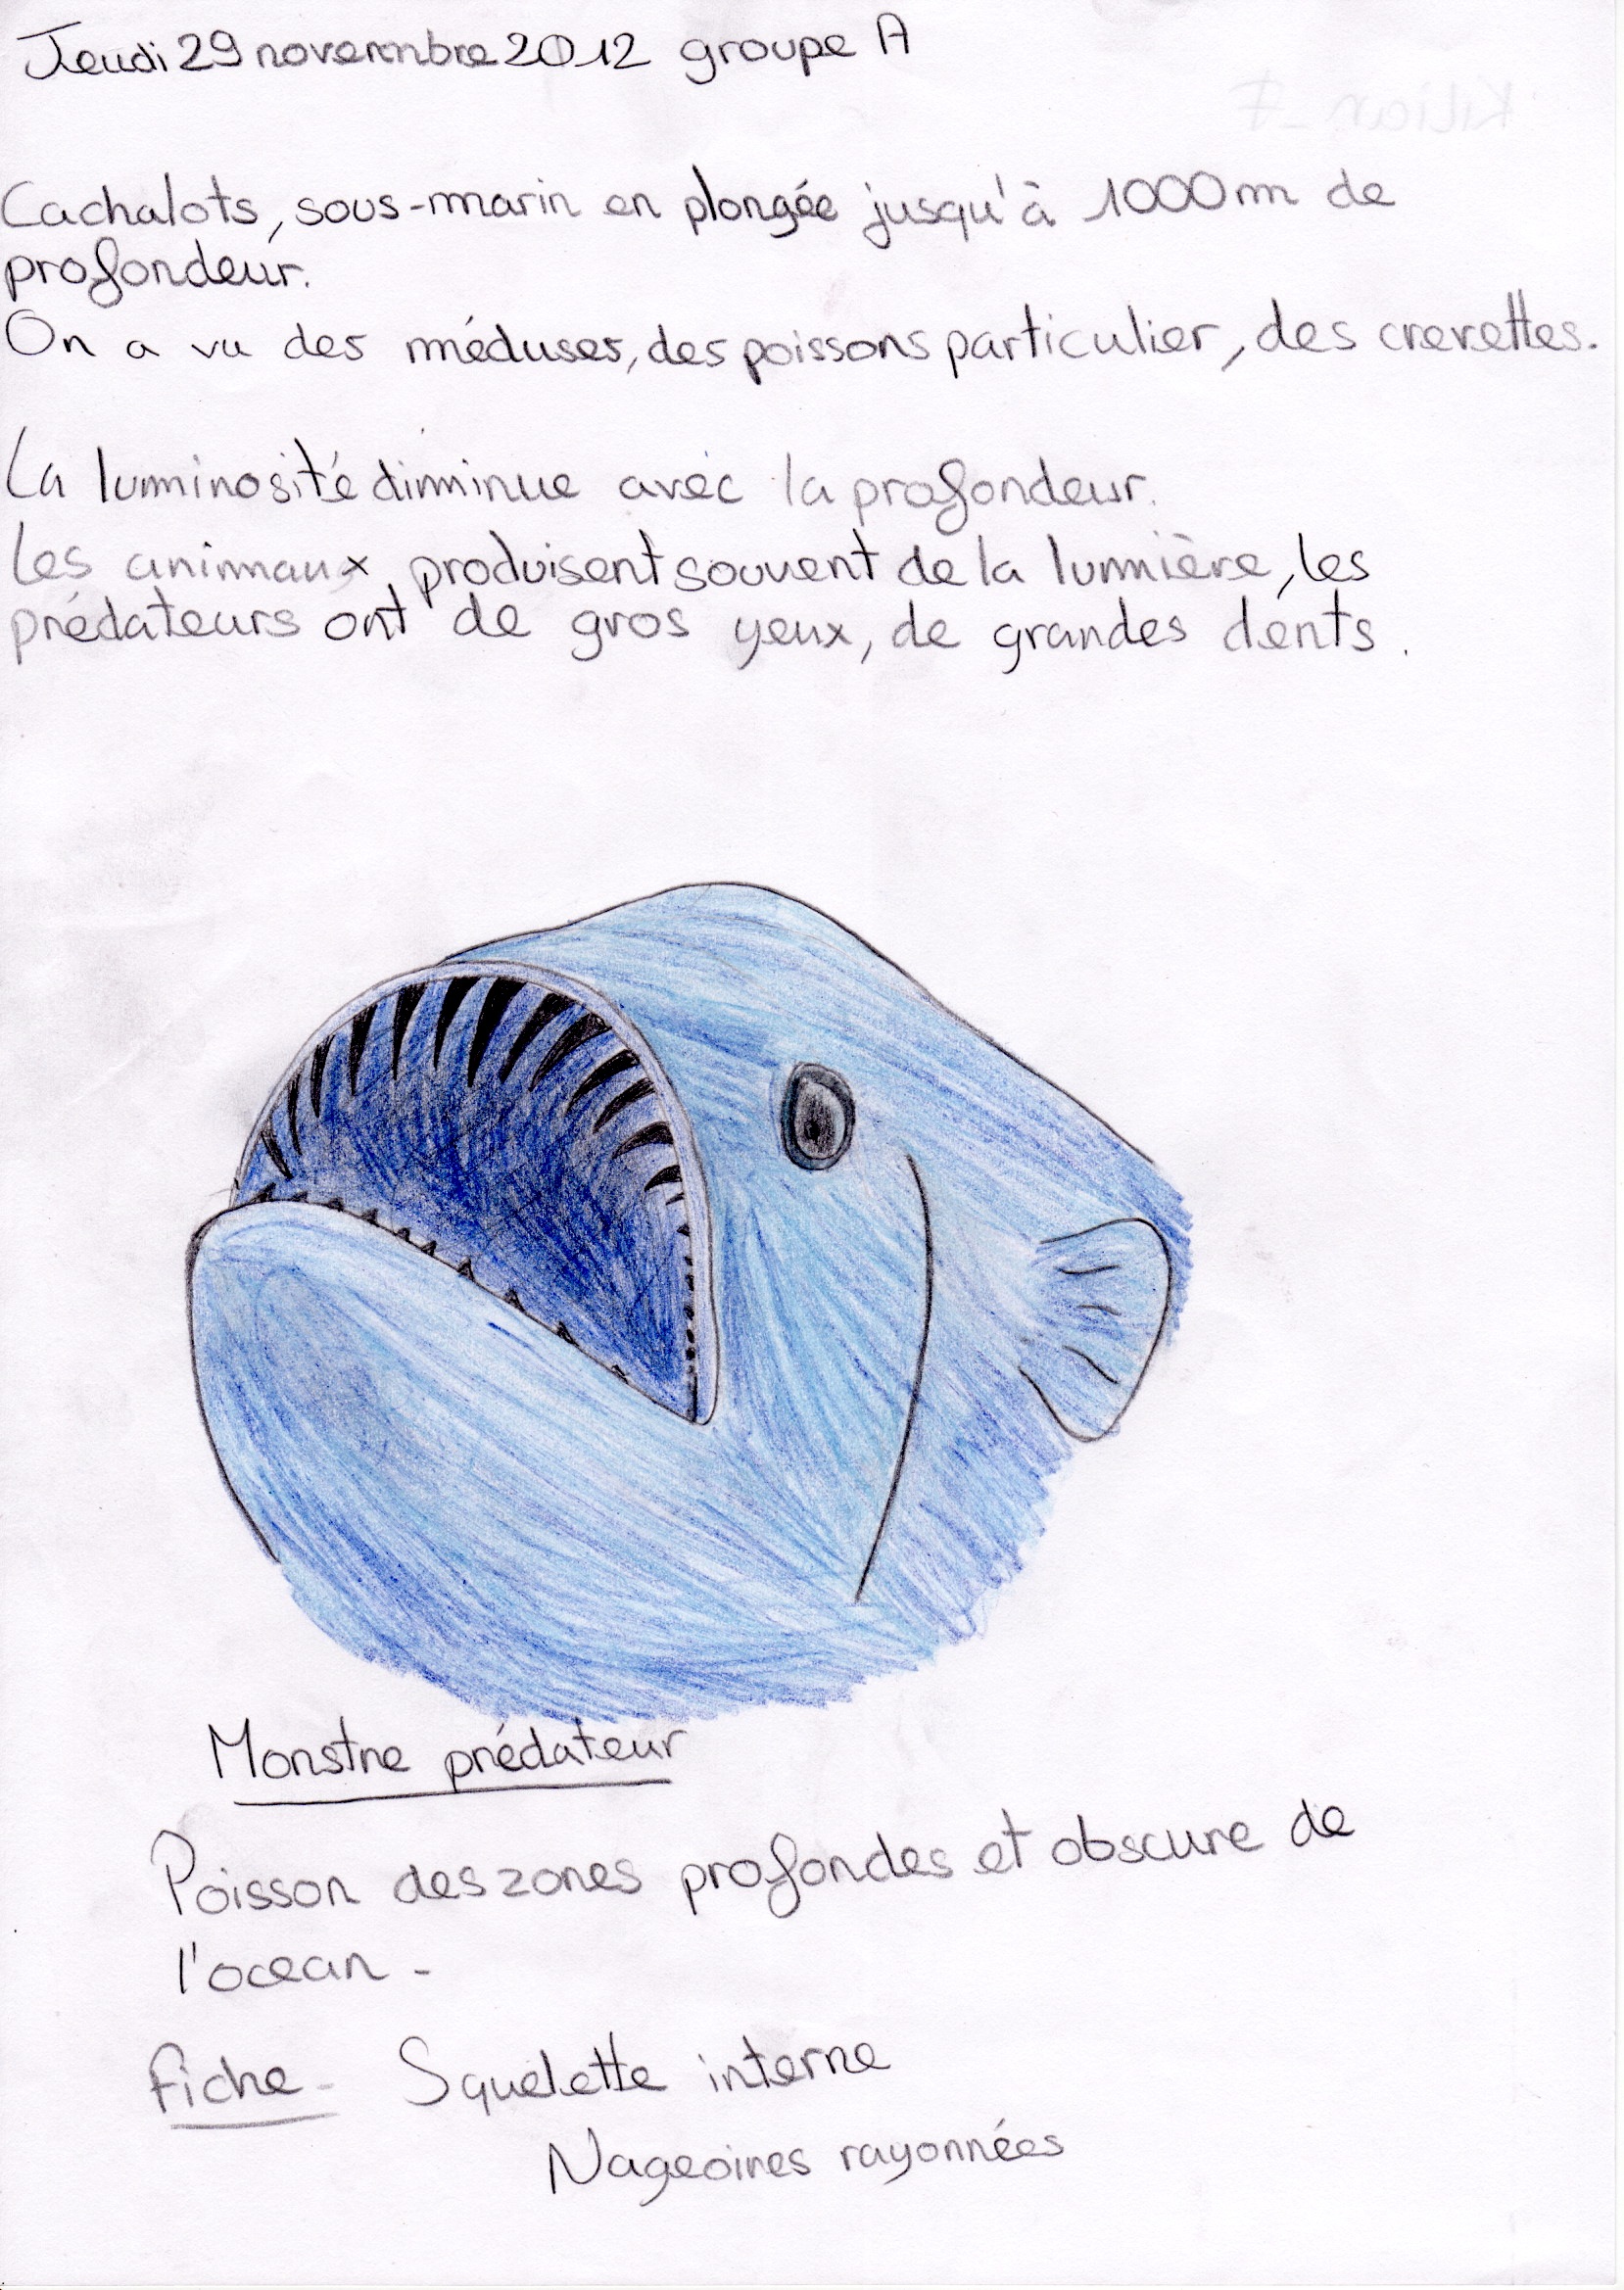 Jeudi 29 novembre 2012 groupe A
Kilian_F
Cachalots, sous-marin en plongée jusqu'à 1000m de
profondeur.
On a vu des méduses, des poissons particulier, des crevettes.
La luminosité diminue avec la profondeur.
Les animaux produisent souvent de la lumière, les
prédateurs ont de gros yeux, de grandes dents.
Monstre prédateur
Poisson des zones profondes et obscure de
l'ocean -
Fiche - Squelette interne
Nageoires rayonnées